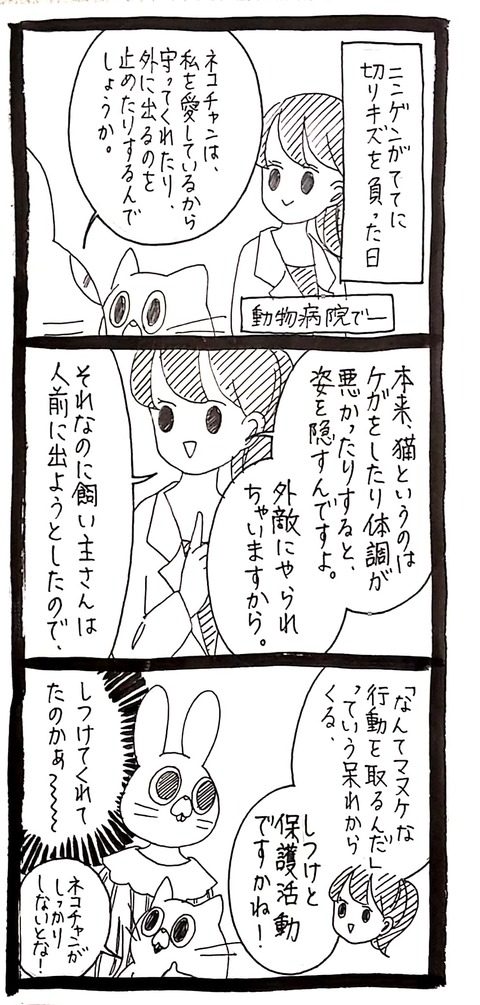 ニンゲンがてに
切りキズを負った日
ネコチャンは、
私を愛しているから
守ってくれたり、
外に出るのを
止めたりするんで
しょうか。
動物病院で―
本来、猫というのは
ケガをしたり体調が
悪かったりすると、
姿を隠すんですよ。
外敵にやられ
ちゃいますから。
それなのに飼い主さんは
人前に出ようとしたので、
「なんてマヌケな
行動を取るんだ」
っていう呆れから
くる、
しつけと
保護活動
ですかね！
しつけてくれて
たのかぁ〜〜〜
ネコチャンが
しっかり
しないとな！